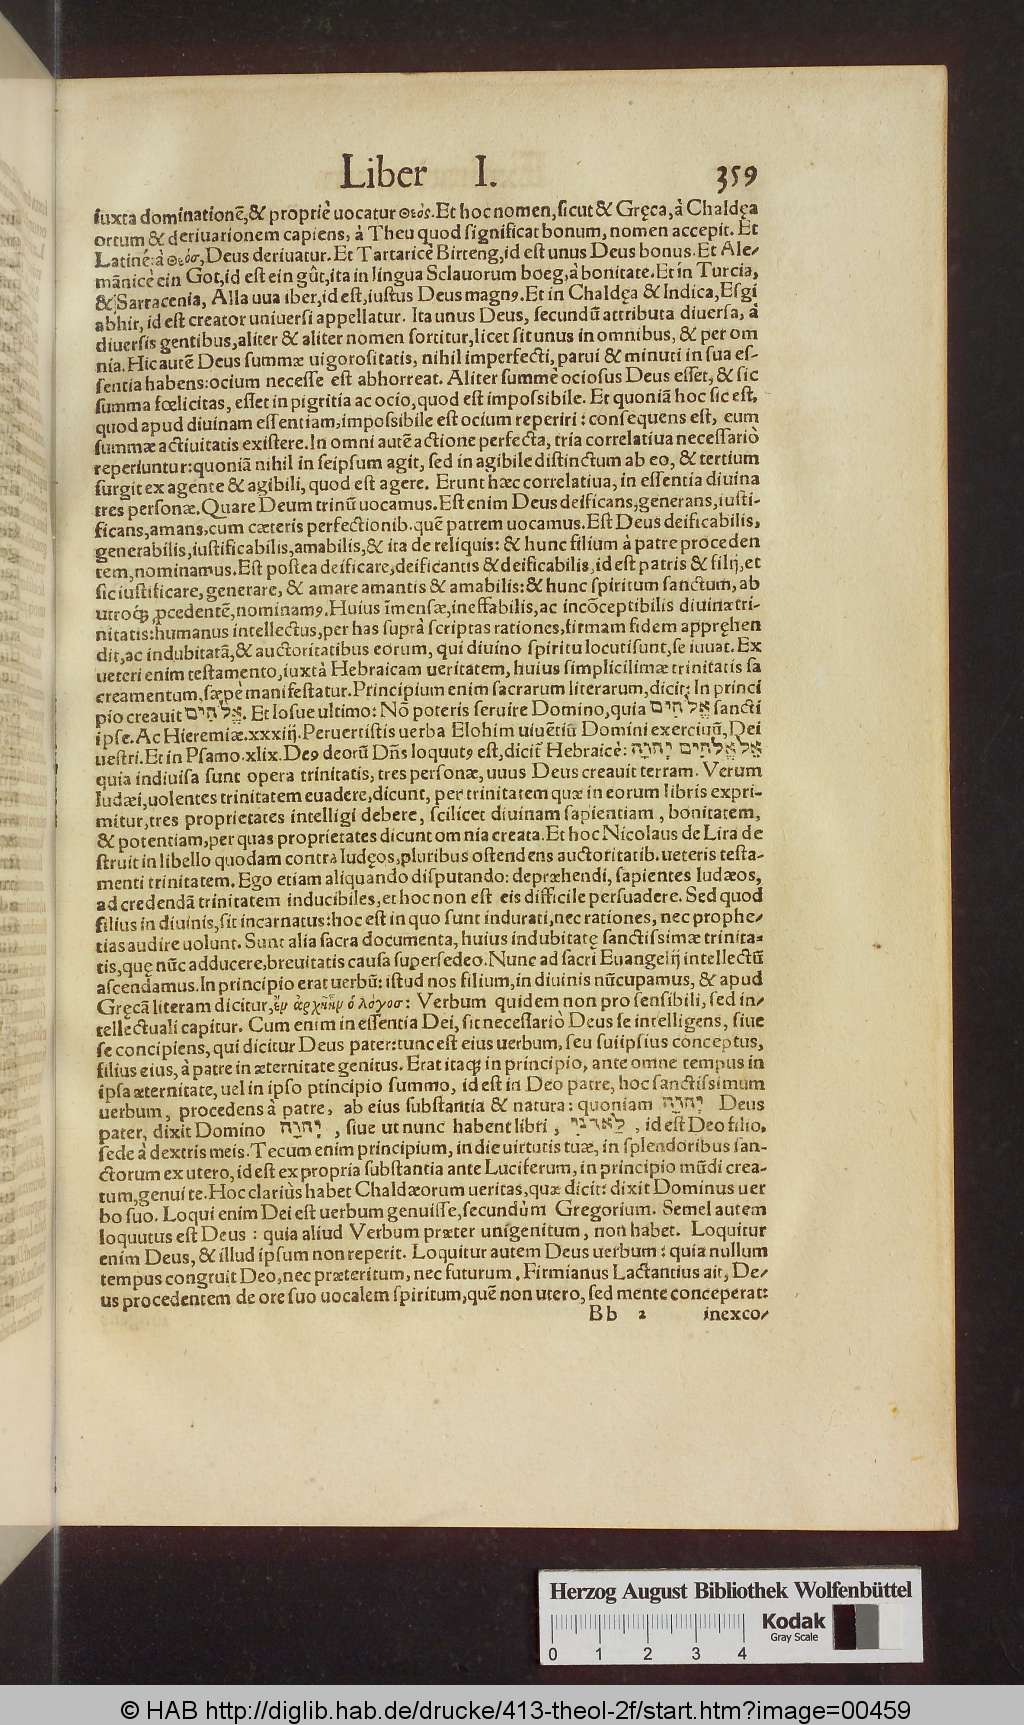 Liber I. 359
iuxta dominationē, & propriè uocatur Θεός. Et hoc nomen, sicut & Gręca, à Chaldęa
ortum & deriuationem capiens, à Theu quod significat bonum, nomen accepit. Et
Latinè: à Θεόσ, Deus deriuatur. Et Tartaricè Birteng, id est unus Deus bonus. Et Ale/
mānicè ein Got, id est ein gůt, ita in lingua Sclauorum boeg, à bonitate. Et in Turcia,
& Sarracenia, Alla uua iber, id est, iustus Deus magn9. Et in Chaldęa & Indica, Esgi
abhir, id est creator uniuersi appellatur. Ita unus Deus, secundū attributa diuersa, à
diuersis gentibus, aliter & aliter nomen sortitur, licet sit unus in omnibus, & per om
nia. Hic autē Deus summæ uigorositatis, nihil imperfecti, parui & minuti in sua es-
sentia habens: ocium necesse est abhorreat. Aliter summè ociosus Deus esset, & sic
summa fœlicitas, esset in pigritia ac ocio, quod est impossibile. Et quoniā hoc sic est,
quod apud diuinam essentiam, impossibile est ocium reperiri: consequens est, eum
summæ actiuitatis existere. In omni autē actione perfecta, tria correlatiua necessariò
reperiuntur: quoniā nihil in seipsum agit, sed in agibile distinctum ab eo, & tertium
surgit ex agente & agibili, quod est agere. Erunt hæc correlatiua, in essentia diuina
tres personæ. Quare Deum trinū uocamus. Est enim Deus deificans, generans, iusti-
ficans, amans, cum cæteris perfectionib. quē patrem uocamus. Est Deus deificabilis,
generabilis, iustificabilis, amabilis, & ita de reliquis: & hunc filium à patre proceden
tem, nominamus. Est postea deificare, deificantis & deificabilis, id est patris & filij, et
sic iustificare, generare, & amare amantis & amabilis: & hunc spiritum sanctum, ab
utroq; pcedentē, nominam9. Huius īmensæ, ineffabilis, ac incōceptibilis diuinæ tri-
nitatis: humanus intellectus, per has suprà scriptas rationes, firmam fidem appręhen
dit, ac indubitatā, & auctoritatibus eorum, qui diuino spiritu locuti sunt, se iuuat. Ex
ueteri enim testamento, iuxtà Hebraicam ueritatem, huius simplicissimæ trinitatis sa
creamentum, sæpè manifestatur. Principium enim sacrarum literarum, dicit: In princi
pio creauit אֱלֹהִים. Et Iosue ultimo: Nō poteris seruire Domino, quia אֱלֹהִים sancti
ipse. Ac Hieremiæ. xxxiij. Peruertistis uerba Elohim uiuētiū Domini exercituū, Dei
uestri. Et in Psamo. xlix. De9 deorū Dn̄s loquut9 est, dicit Hebraicè: אֵל אֱלֹהִים יְהוָה
quia indiuisa sunt opera trinitatis, tres personæ, uuus Deus creauit terram. Verum
Iudæi, uolentes trinitatem euadere, dicunt, per trinitatem quæ in eorum libris expri-
mitur, tres proprietates intelligi debere, scilicet diuinam sapientiam, bonitatem,
& potentiam, per quas proprietates dicunt omnia creata. Et hoc Nicolaus de Lira de
struit in libello quodam contra Iudęos, pluribus ostendens auctoritatib. ueteris testa-
menti trinitatem. Ego etiam aliquando disputando: depræhendi, sapientes Iudæos,
ad credendā trinitatem inducibiles, et hoc non est eis difficile persuadere. Sed quod
filius in diuinis, sit incarnatus: hoc est in quo sunt indurati, nec rationes, nec prophe/
tias audire uolunt. Sunt alia sacra documenta, huius indubitatę sanctissimæ trinita-
tis, quę nūc adducere, breuitatis causa supersedeo. Nunc ad sacri Euangelij intellectū
ascendamus. In principio erat uerbū: istud nos filium, in diuinis nūcupamus, & apud
Gręcā literam dicitur, ἐν ἀρχῇ ἦν ὁ λόγοσ: Verbum quidem non pro sensibili, sed in/
tellectuali capitur. Cum enim in essentia Dei, sit necessariò Deus se intelligens, siue
se concipiens, qui dicitur Deus pater: tunc est eius uerbum, seu suiipsius conceptus,
filius eius, à patre in æternitate genitus. Erat itaq; in principio, ante omne tempus in
ipsa æternitate, uel in ipso ptincipio summo, id est in Deo patre, hoc sanctissimum
uerbum, procedens à patre, ab eius substantia & natura: quoniam יְהוָה Deus
pater, dixit Domino יְהוָה, siue ut nunc habent libri, לַאדֹנִי, id est Deo filio,
sede à dextris meis. Tecum enim principium, in die uirtutis tuæ, in splendoribus san-
ctorum ex utero, id est ex propria substantia ante Luciferum, in principio mūdi crea-
tum, genui te. Hoc clariùs habet Chaldæorum ueritas, quæ dicit: dixit Dominus uer
bo suo. Loqui enim Dei est uerbum genuisse, secundùm Gregorium. Semel autem
loquutus est Deus: quia aliud Verbum præter unigenitum, non habet. Loquitur
enim Deus, & illud ipsum non reperit. Loquitur autem Deus uerbum: quia nullum
tempus congruit Deo, nec præteritum, nec futurum. Firmianus Lactantius ait, De/
us procedentem de ore suo uocalem spiritum, quē non utero, sed mente conceperat:
Bb 2 inexco/
Herzog August Bibliothek Wolfenbüttel
0 1 2 3 4
Kodak
Gray Scale
© HAB http://diglib.hab.de/drucke/413-theol-2f/start.htm?image=00459